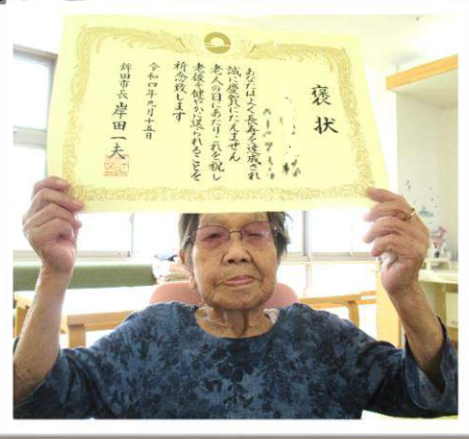 褒状
あなたはよく長寿を達成され
誠に慶賀にたえません
老人の日にあたりこれを祝し
老後を健やかに送られることを
祈念致します
令和四年九月十五日
鉾田市長 岸田一夫